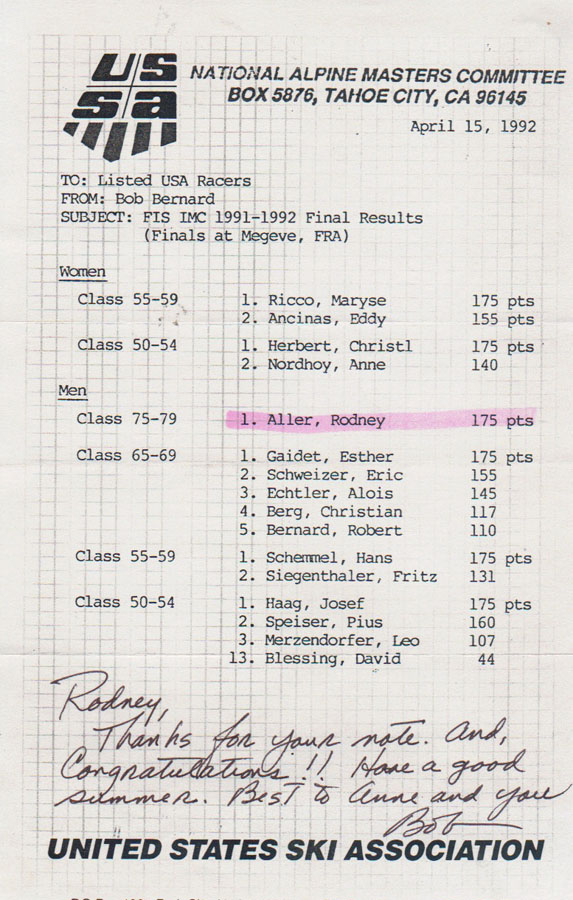 US
Sa
NATIONAL ALPINE MASTERS COMMITTEE
BOX 5876, TAHOE CITY, CA 96145
April 15, 1992
TO: Listed USA Racers
FROM: Bob Bernard
SUBJECT: FIS IMC 1991-1992 Final Results
(Finals at Megeve, FRA)
Women
Class 55-59 1. Ricco, Maryse 175 pts
2. Ancinas, Eddy 155 pts
Class 50-54 1. Herbert, Christl 175 pts
2. Nordhoy, Anne 140
Men
Class 75-79 1. Aller, Rodney 175 pts
Class 65-69 1. Gaidet, Esther 175 pts
2. Schweizer, Eric 155
3. Echtler, Alois 145
4. Berg, Christian 117
5. Bernard, Robert 110
Class 55-59 1. Schemmel, Hans 175 pts
2. Siegenthaler, Fritz 131
Class 50-54 1. Haag, Josef 175 pts
2. Speiser, Pius 160
3. Merzendorfer, Leo 107
13. Blessing, David 44
Rodney,
Thanks for your note. And,
Congratulations!! Have a good
summer. Best to Anne and you
Bob
UNITED STATES SKI ASSOCIATION